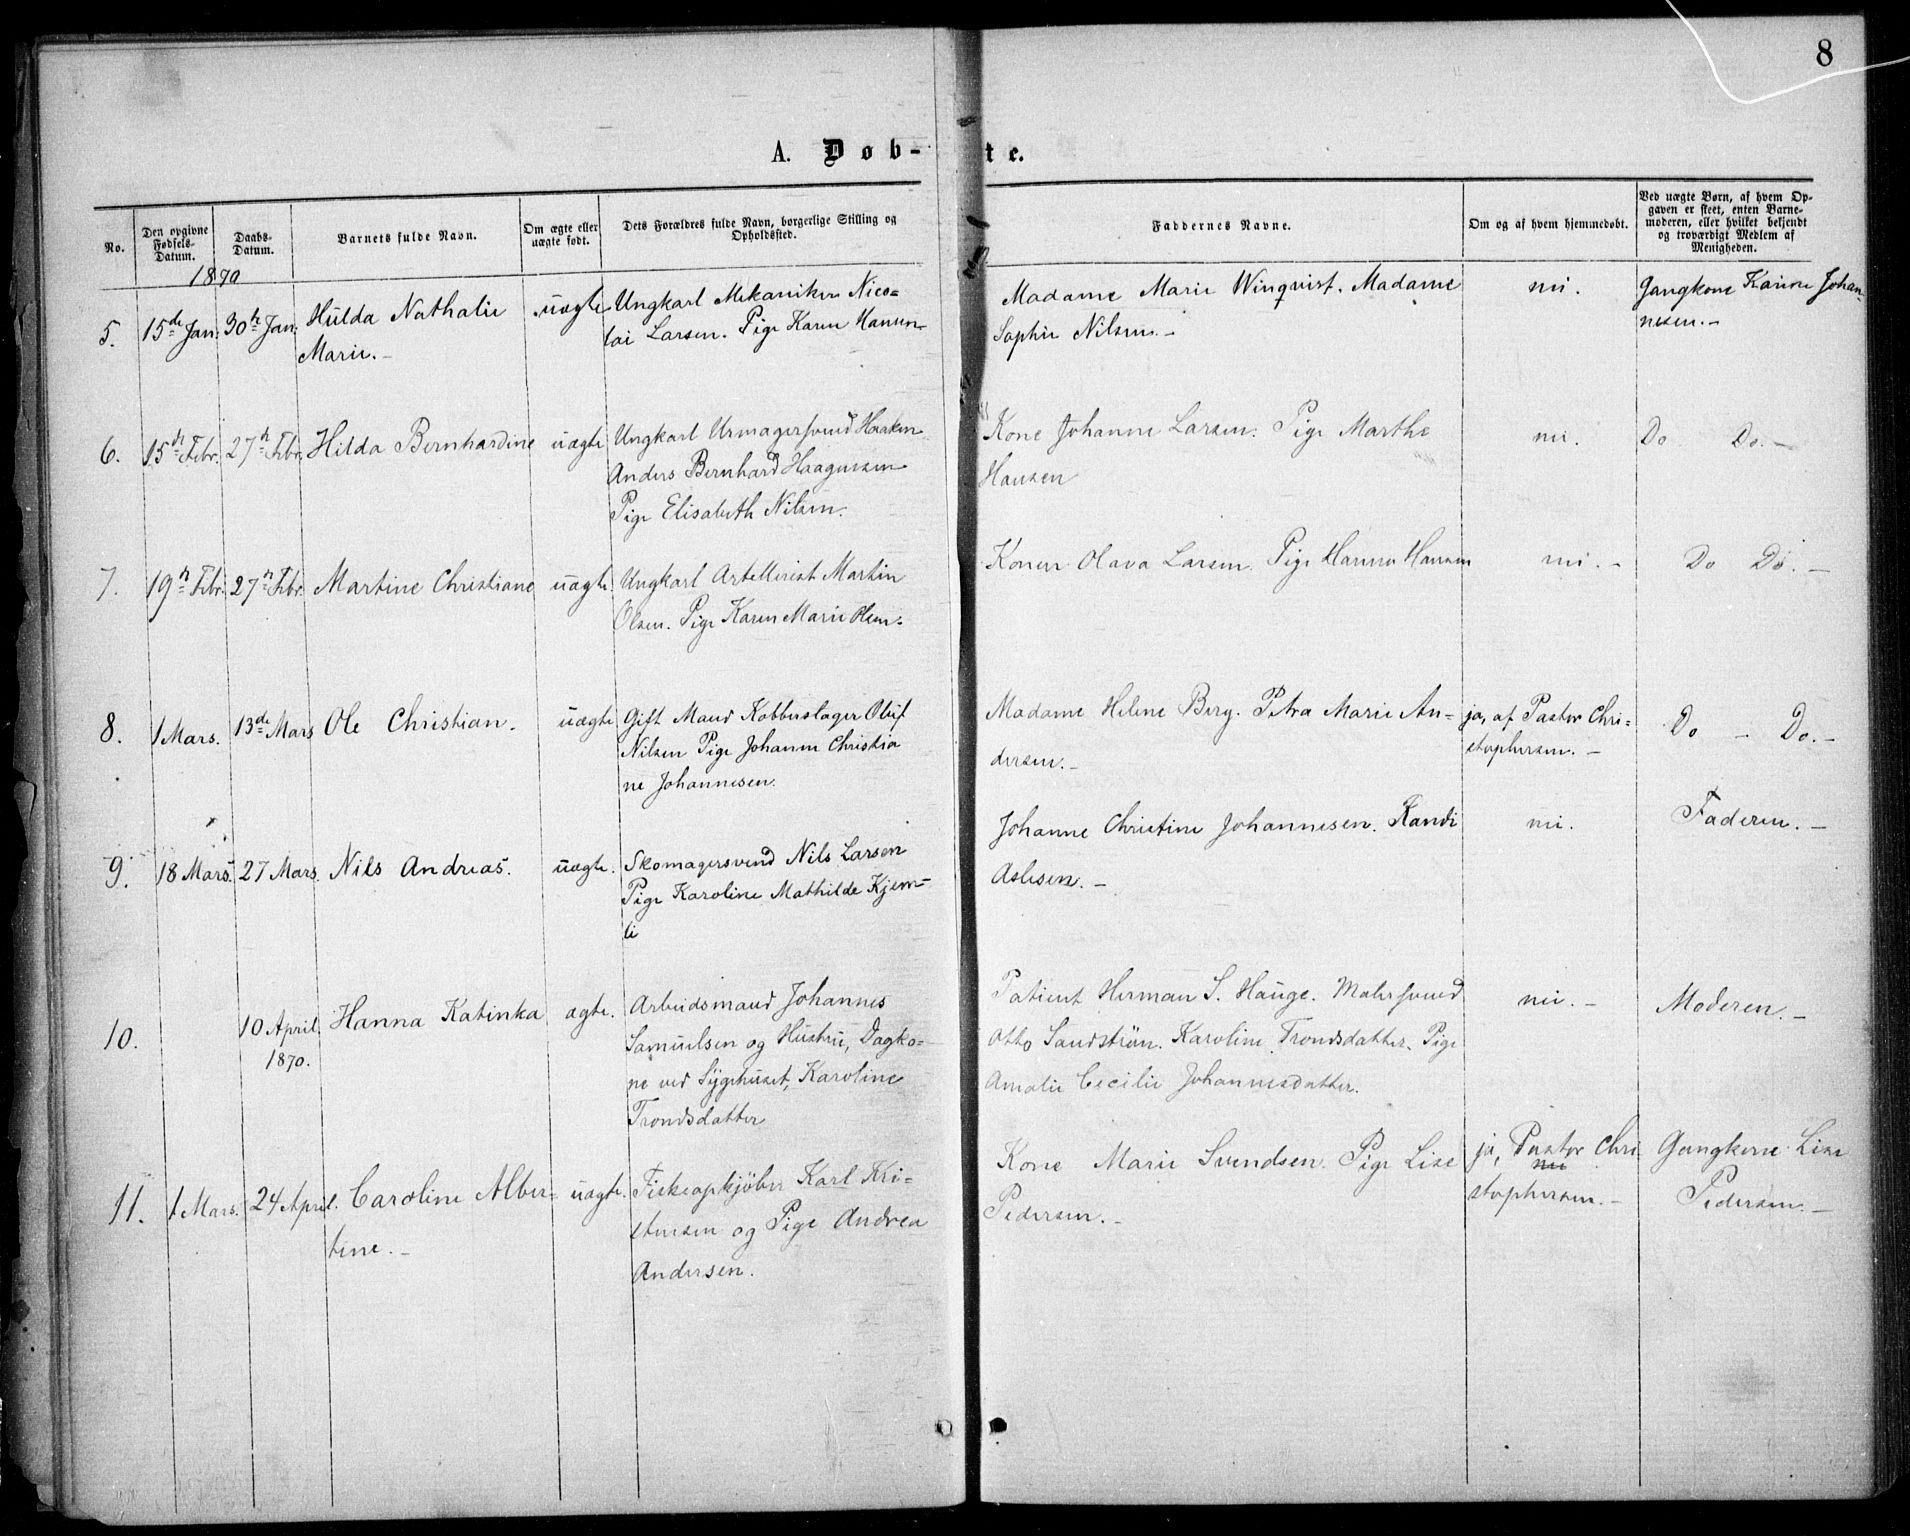 8
A. Døb-
te.
No.
Den opgivne Fødsels-Datum.
Daabs-Datum.
Barnets fulde Navn.
Om ægte eller uægte født.
Dets Forældres fulde Navn, borgerlige Stilling og Opholdssted.
Faddernes Navne.
Om og af hvem hjemmedøbt.
Ved uægte Børn, af hvem Op-
gaven er skeet, enten Barne-
moderen, eller hvilket bekjendt
og troværdigt Medlem af
Menigheden.
1870
5. 15de Jan: 30te Jan: Hulda Nathalie
Marie.-
uægte
Ungkarl Mekaniker Nico-
lai Larsen. Pige Karen Hansen-
Madame Marie Winqvist. Madame
Sophie Nilsen.-
nei.
Gangkone Karine Johan-
nesen.-
6. 15de Febr. 27de Febr. Hilda Bernhardine
uægte
Ungkarl Urmagersvend Haaken
Anders Bernhard Haagensen
Pige Elisabeth Nilsen.
Kone Johanne Larsen. Pige Marthe
Hansen
nei.
Do Do.-
7. 19n Febr. 27n Febr. Martine Christiane
uægte
Ungkarl Artellerist Martin
Olsen. Pige Karen Marie Olsen.
Konen Olava Larsen. Pige Hanna Hansen
nei.-
Do Do.-
8. 1 Mars. 13de Mars Ole Christian.
uægte
Gift Mand Kobberslager Oluf
Nilsen Pige Johanne Christia
ne Johannesen.
Madame Helene Berg. Petra Marie An-
dersen.-
ja, af Pastor Chri-
stophersen.-
Do - Do.-
9. 18 Mars. 27 Mars. Nils Andreas.
uægte.
Skomagersvend Nils Larsen
Pige Karoline Mathilde Kjem-
li
Johanne Christine Johannesen. Randi
Aslesen.-
nei.
Faderen.-
10. 10 April.
1870.
Hanna Katinka
ægte.
Arbeidsmand Johannes
Samuelsen og Hustru, Dagko-
ne ved Sygehuset, Karoline
Trondsdatter
Patient Herman S. Hauge. Malersvend
Otto Sandstrøm. Karoline Trondsdatter. Pige
Amalie Cecilie Johannesdatter.
nei.-
Moderen.-
11. 1 Mars. 24 April. Caroline Alber-
tine.-
uægte.
Fiskeopkjøber Karl Kri-
stensen og Pige Andrea
Andersen.
Kone Marie Svendsen. Pige Lise
Pedersen.-
ja, Pastor Chri
nei
stophersen.-
Gangkone Lise
Pedersen.-